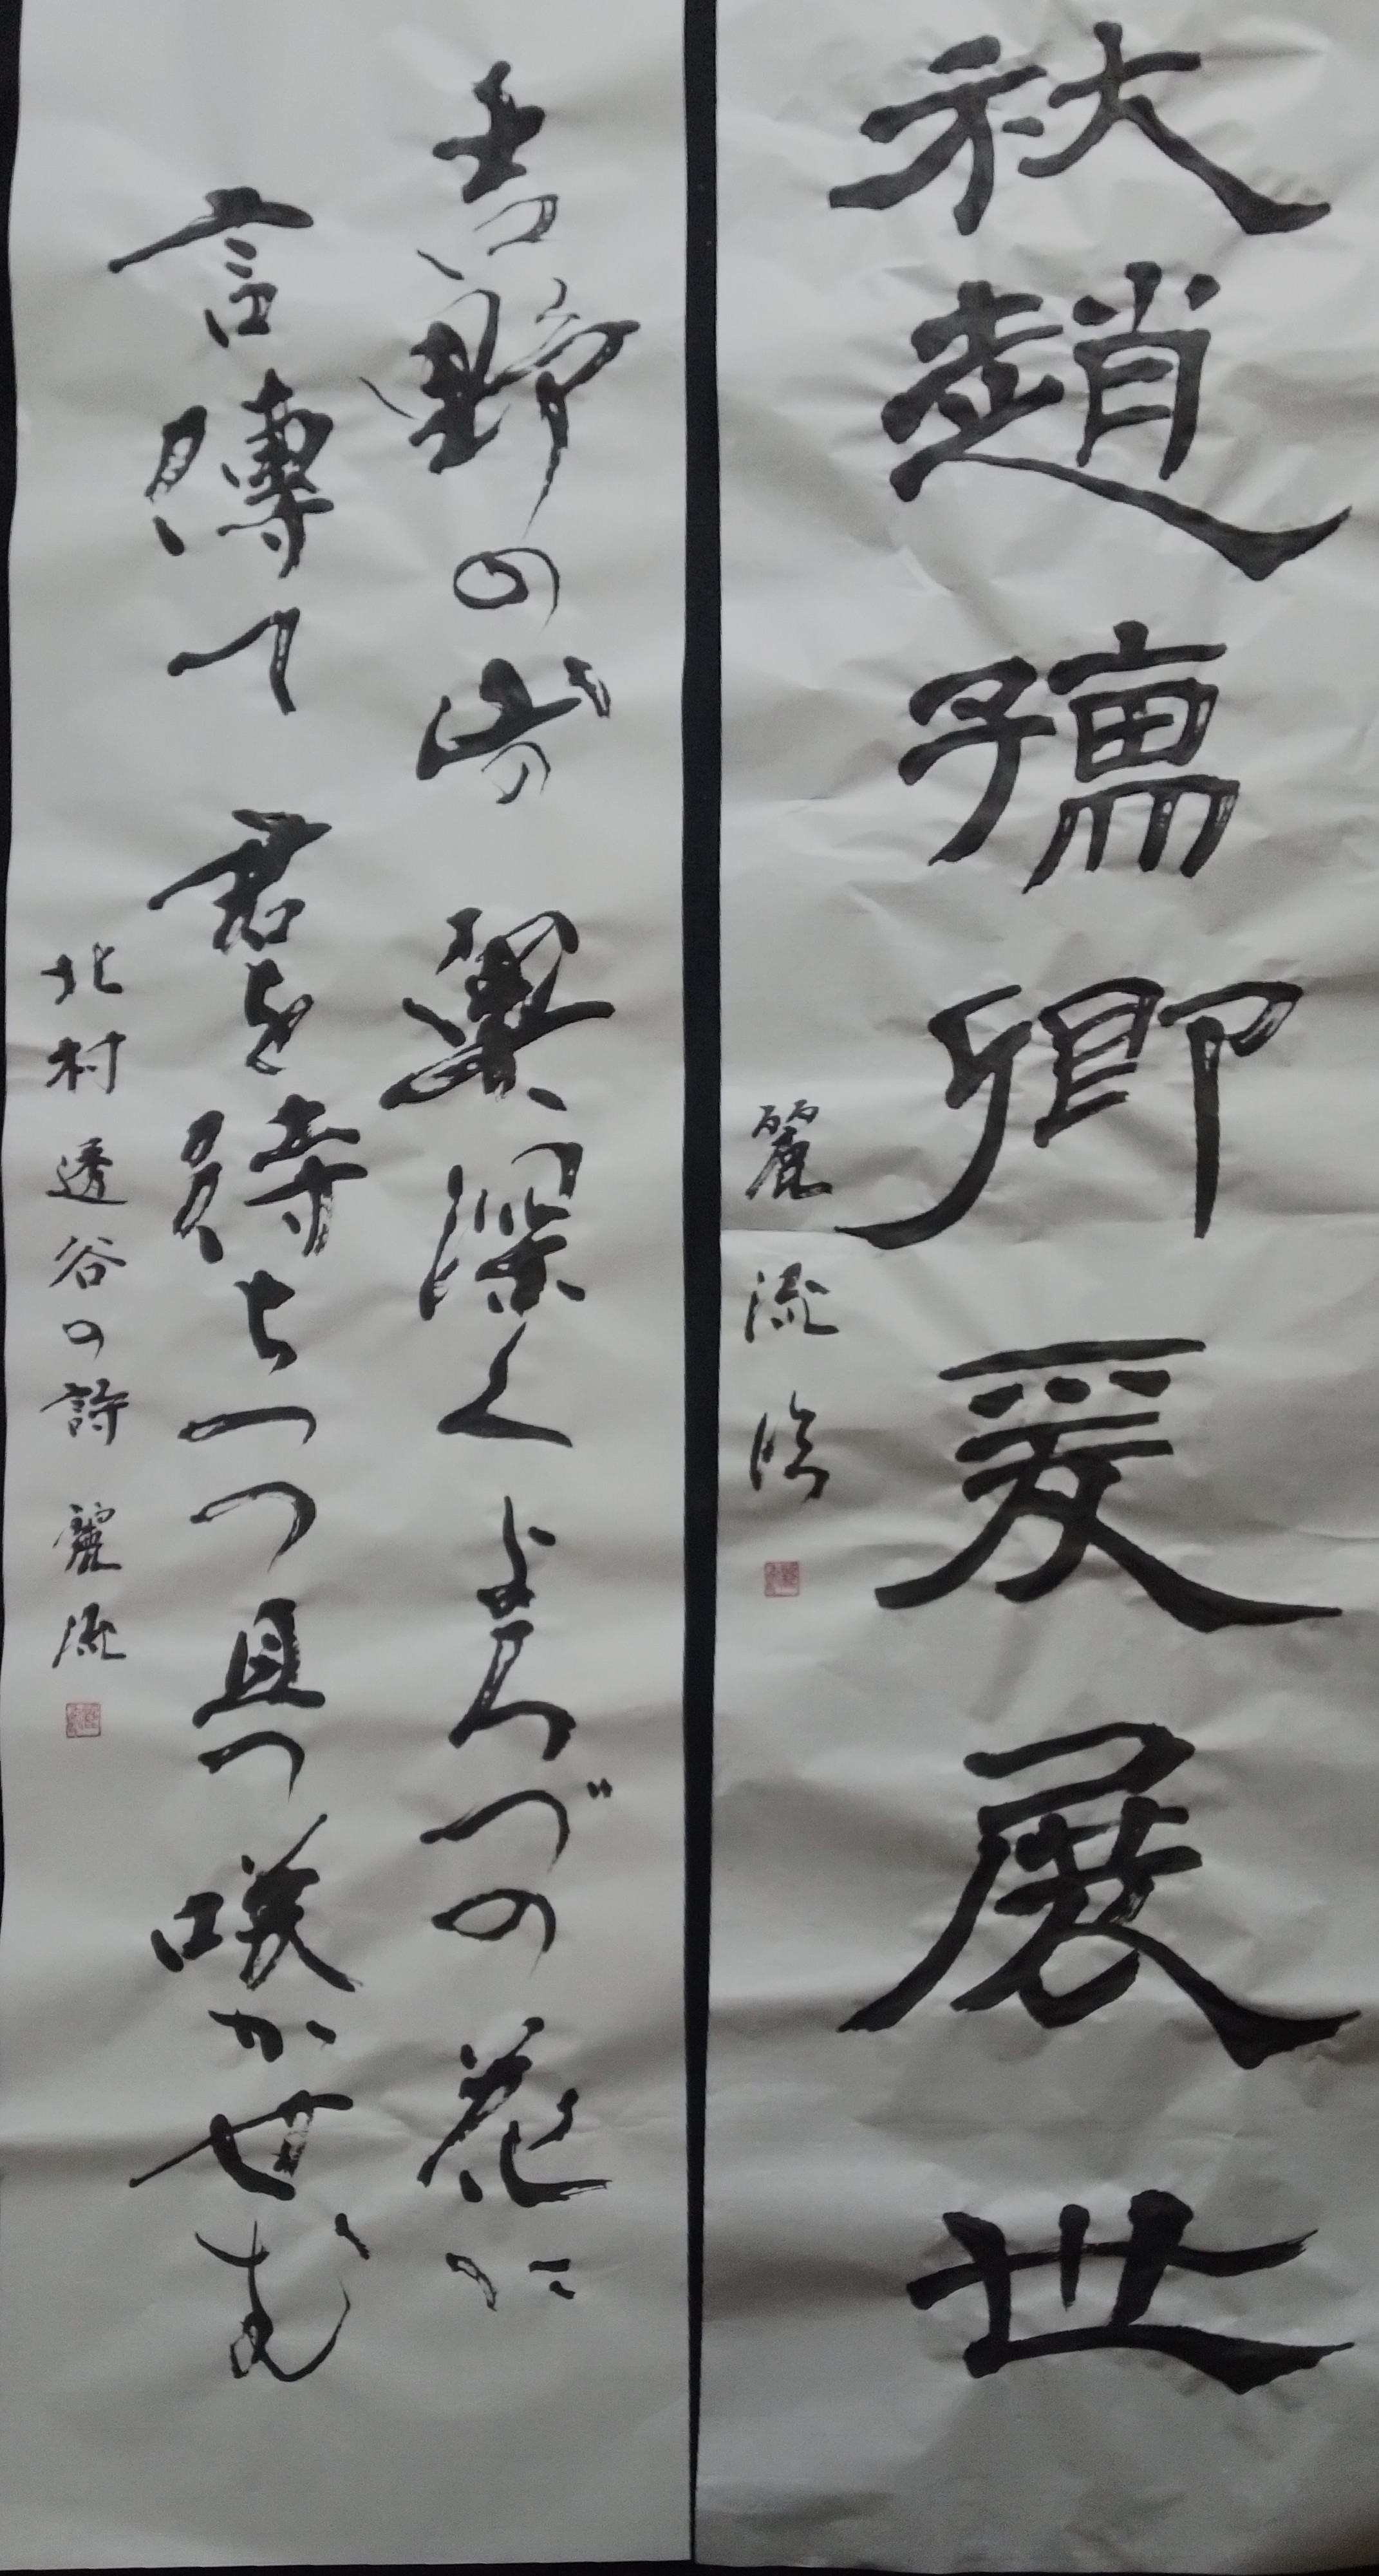 趙孺卿爰展世
麗流臨
吉野の山の奥深くよろづの花に
言傳て君を待ちつつ且つ咲かせむ
北村透谷の詩 麗流